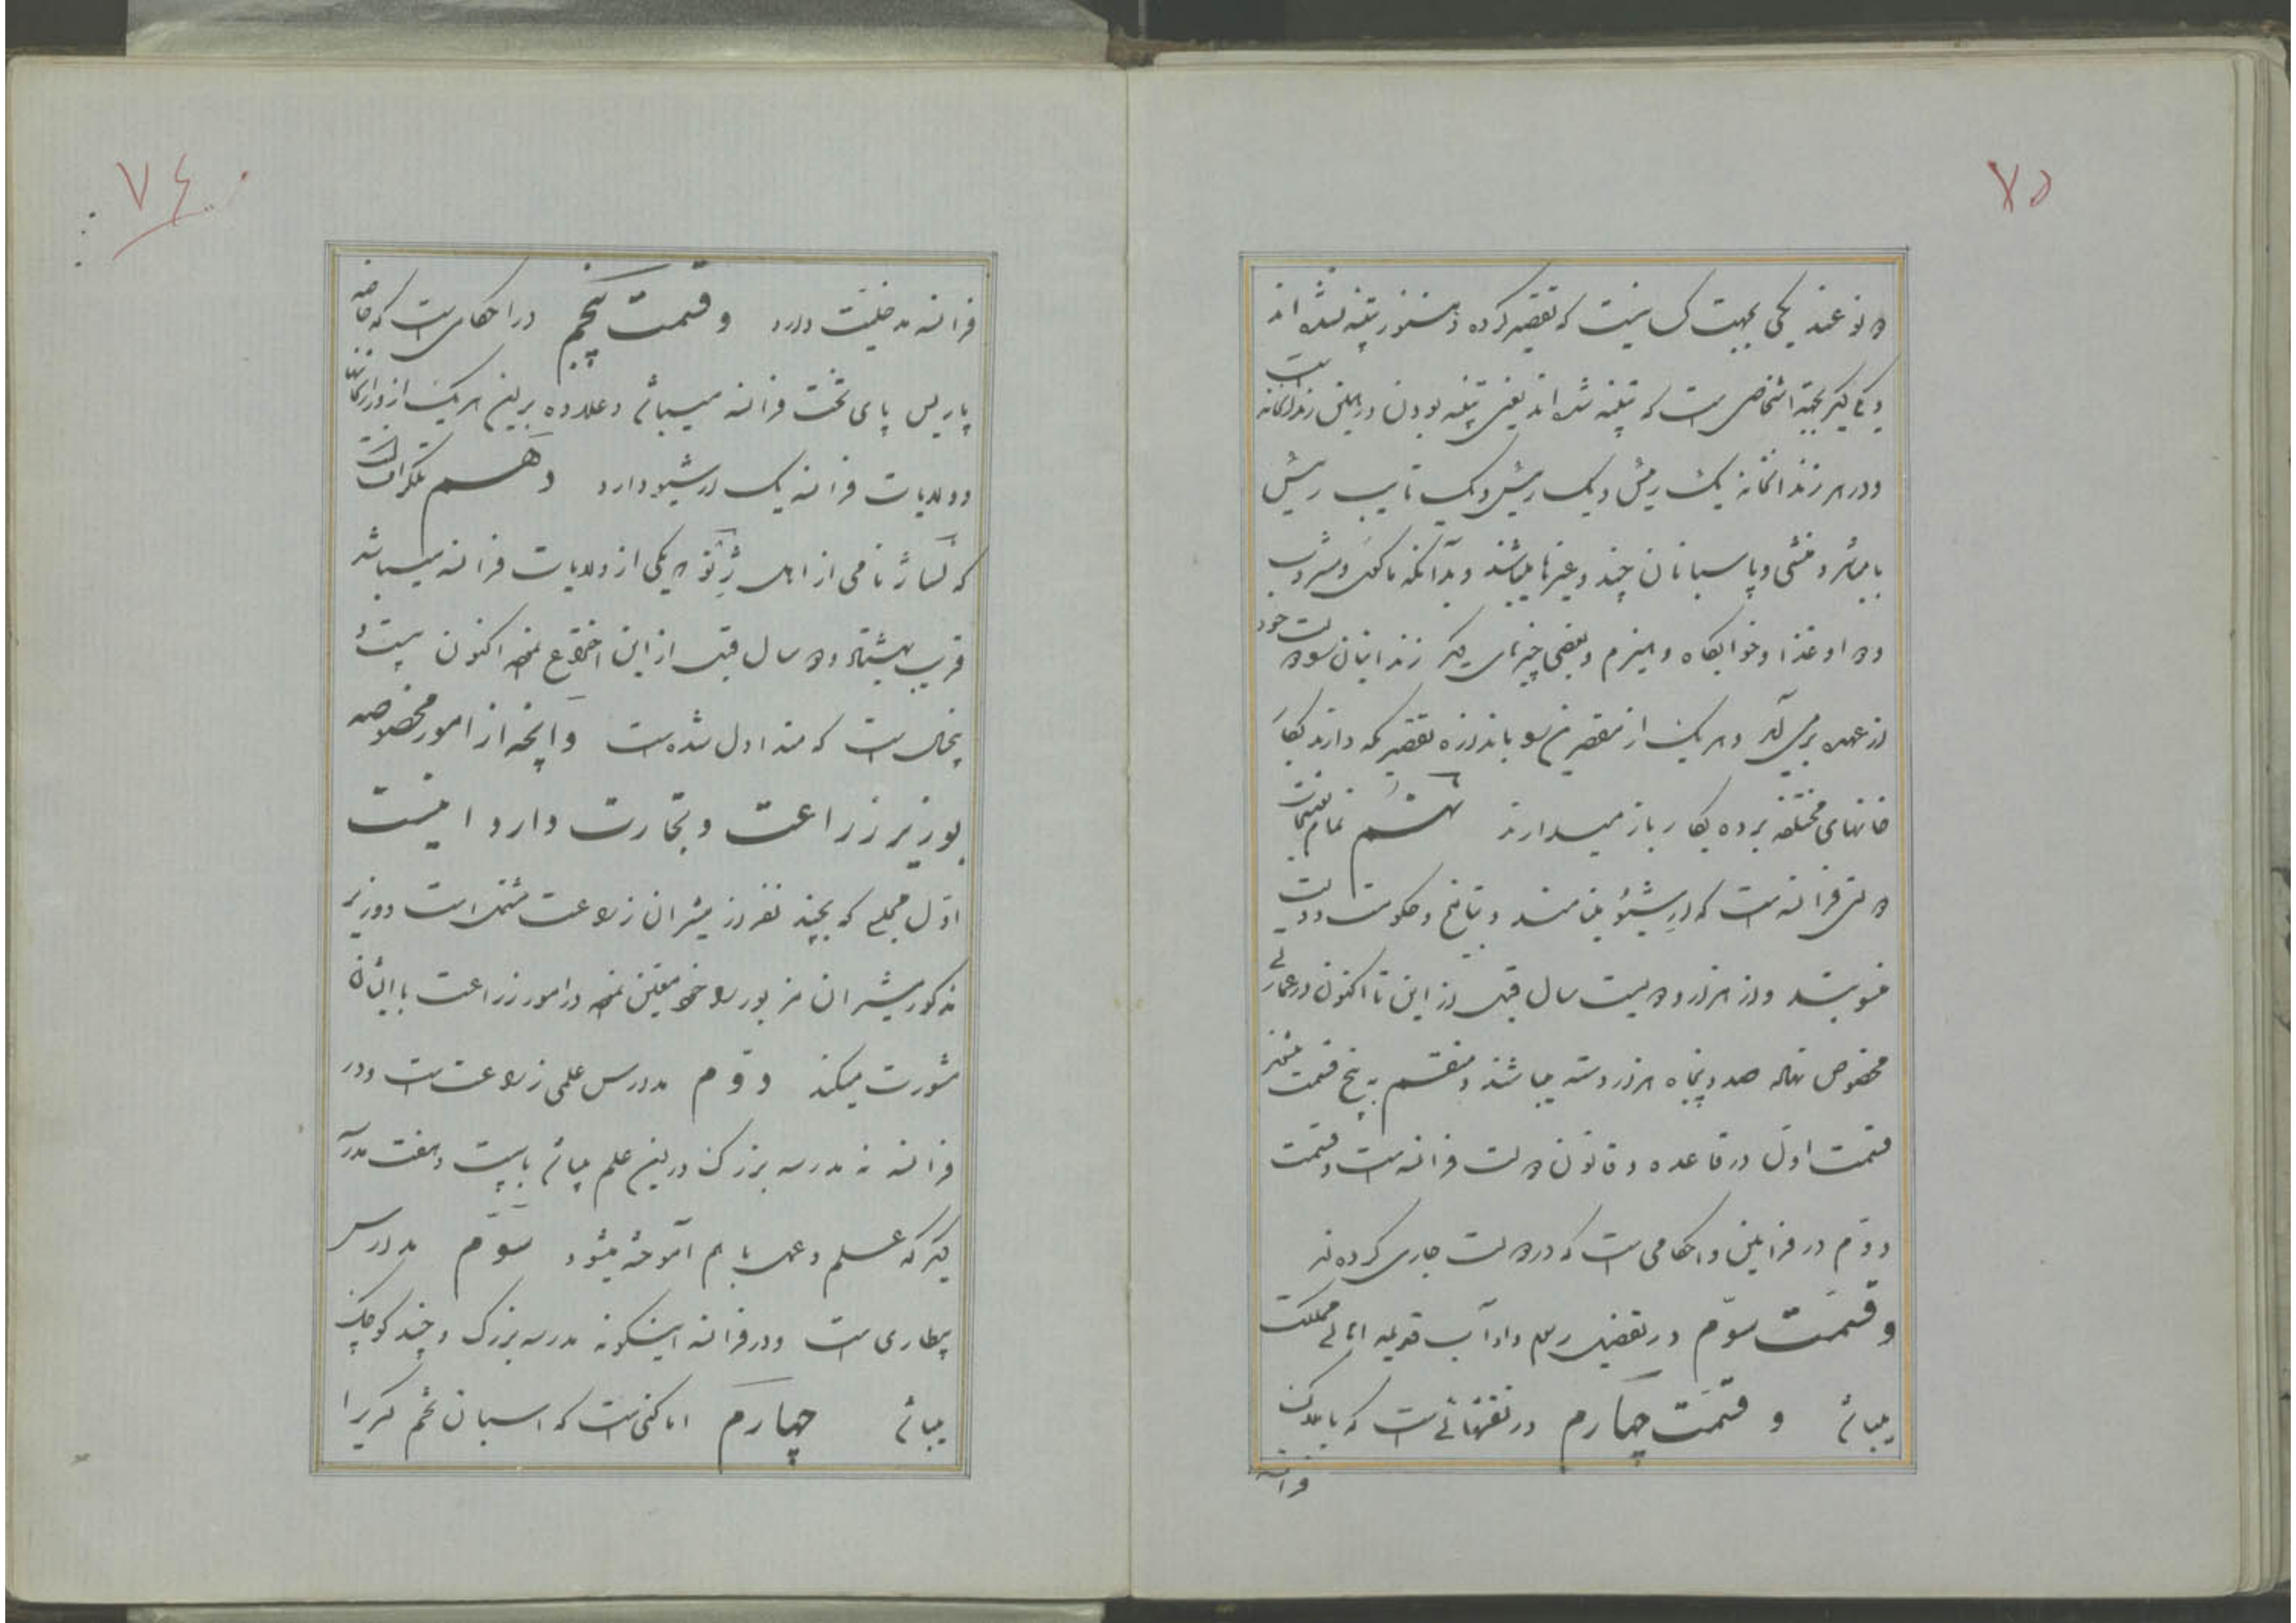 ۷۵
دو نوعند یکی بجهت کسانیست که تقصیر کرده و هنوز تنبیه نشده اند
و یکی دیگر بجهة اشخاصی است که تنبیه شده اند یعنی تنبیه بودن در همین زندانخانه است
و در هر زندانخانه یک رئیس و یک نایب رئیس
با مباشر و منشی و پاسبانان چند و غیرها میباشند و بدانکه ماکول و مشروب
و دوا و غذا و خوابگاه و هیزم و بعضی چیزهای دیگر زندانیان را دولت خود
از عهده برمی آید و هر یک از مقصرین را باندازه تقصیریکه دارند بکار
خانهای مختلفه برده بکار باز میدارند نهم تمام
دولتی فرانسه است که ارشیو مینامند و بتاریخ و حکومت و دولت
منسوبند و از هزار و دویست سال قبل از این تا اکنون در عمارتی
مخصوص نهاده صد و پنجاه هزار دسته میباشند و منقسم به پنج قسمت میشوند
قسمت اول در قاعده و قانون دولت فرانسه است و قسمت
دوم در فرامین و احکامی است که در دولت جاری کرده اند
و قسمت سوم در تفصیل رسم و آداب قدیمه اهالی مملکت
میباشد و قسمت چهارم در نقشهائی است که باملاک
فرانسه
۷۶
فرانسه مدخلیت دارد و قسمت پنجم در احکامی است که خاصه
پاریس پای تخت فرانسه میباشد و علاوه برین هر یک از وزارتخانها
و ولایات فرانسه یک ارشیو دارد دهم تلگراف است
که شاژ نامی از اهل ژنو که یکی از ولایات فرانسه میباشد
قریب بهشتاد و دو سال قبل از این اختراع نموده اکنون بیست و
پنجسال است که متداول شده است و آنچه از امور مخصوصه
بوزیر زراعت و تجارت دارد اینست
اول مجلسی که بچند نفر از مشیران زراعت مشتمل است و وزیر
مذکور مشیران مزبور را خود معین نموده در امور زراعت با ایشان
مشورت میکند دوم مدارس علمی زراعت است و در
فرانسه نه مدرسه بزرگ در این علم میباشد با بیست و هفت مدرسه
دیگر که علم و عمل با هم آموخته میشود سوم مدارس
بیطاری است و در فرانسه اینگونه مدرسه بزرگ و چند کوچک
میباشد چهارم اماکنی است که اسبان تخم گیری را